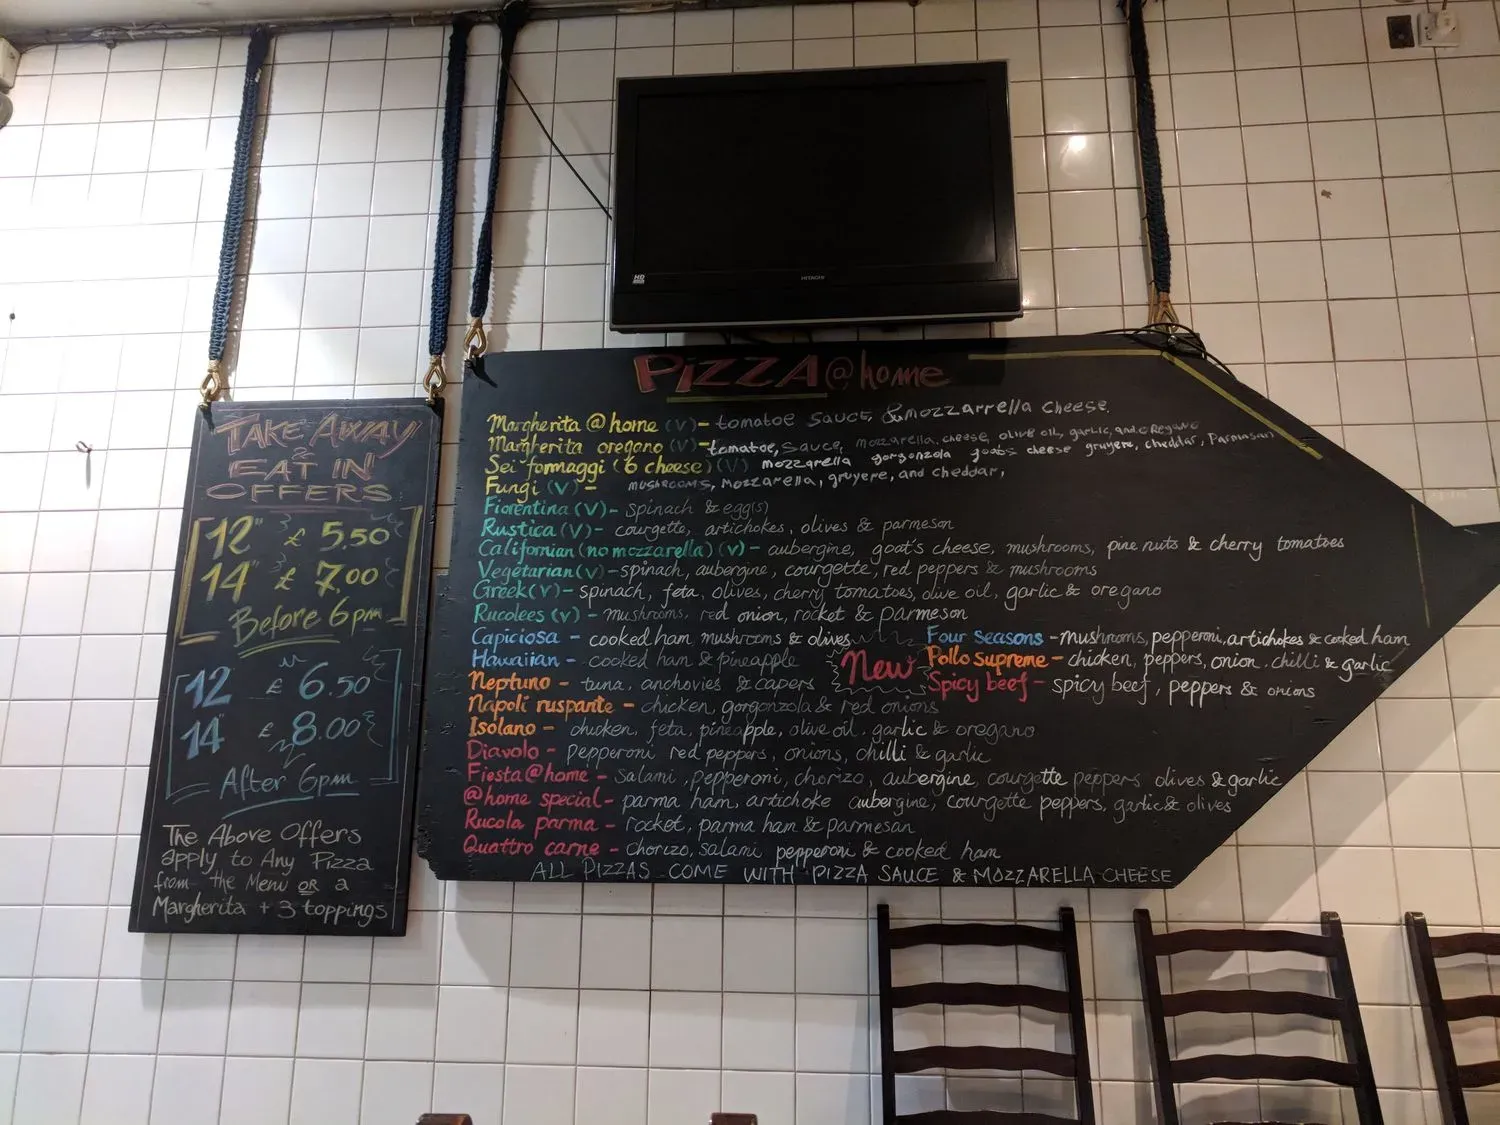 TAKE AWAY
&
EAT IN
OFFERS
12" £ 5.50
14" £ 7.00
Before 6pm
12" £ 6.50
14" £ 8.00
After 6pm
The Above Offers
apply to Any Pizza
from the Menu OR a
Margherita + 3 toppings
HD
HITACHI
PiZZA@home
Margherita @ home (v) - tomatoe sauce, & mozzarrella cheese.
Margherita oregano (v) - tomatoe, sauce, mozzarella. cheese, olive oil, garlic, and oregano
Sei formaggi (6 cheese) (v) mozzarella gorgonzola goat's cheese gruyere, cheddar, Parmasan
Fungi (v) - mushrooms, mozzarella, gruyere, and cheddar,
Fiorentina (v) - spinach & egg(s)
Rustica (v) - courgette, artichokes, olives & parmesan
Californian (no mozzarella) (v) - aubergine, goat's cheese, mushrooms, pine nuts & cherry tomatoes
Vegetarian (v) - spinach, aubergine, courgette, red peppers & mushrooms
Greek (v) - spinach, feta, olives, cherry tomatoes, olive oil, garlic & oregano
Rucolees (v) - mushrooms, red onion, rocket & parmeson
Capiciosa - cooked ham mushrooms & olives
Hawaiian - cooked ham & pineapple
Neptuno - tuna, anchovies & capers
New
Four Seasons - mushrooms, pepperoni, artichokes & cooked ham
Pollo Supreme - chicken, peppers, onion, chilli & garlic
Spicy beef - spicy beef, peppers & onions
Napoli ruspante - chicken, gorgonzola & red onions
Isolano - chicken, feta, pineapple, olive oil, garlic & oregano
Diavolo - pepperoni red peppers, onions, chilli & garlic
Fiesta@home - salami, pepperoni, chorizo, aubergine, courgette peppers olives & garlic
@home special - parma ham, artichoke aubergine, courgette peppers, garlic & olives
Rucola parma - rocket, parma ham & parmesan
Quattro carne - chorizo, salami pepperoni & cooked ham
ALL PIZZAS COME WITH PIZZA SAUCE & MOZZARELLA CHEESE